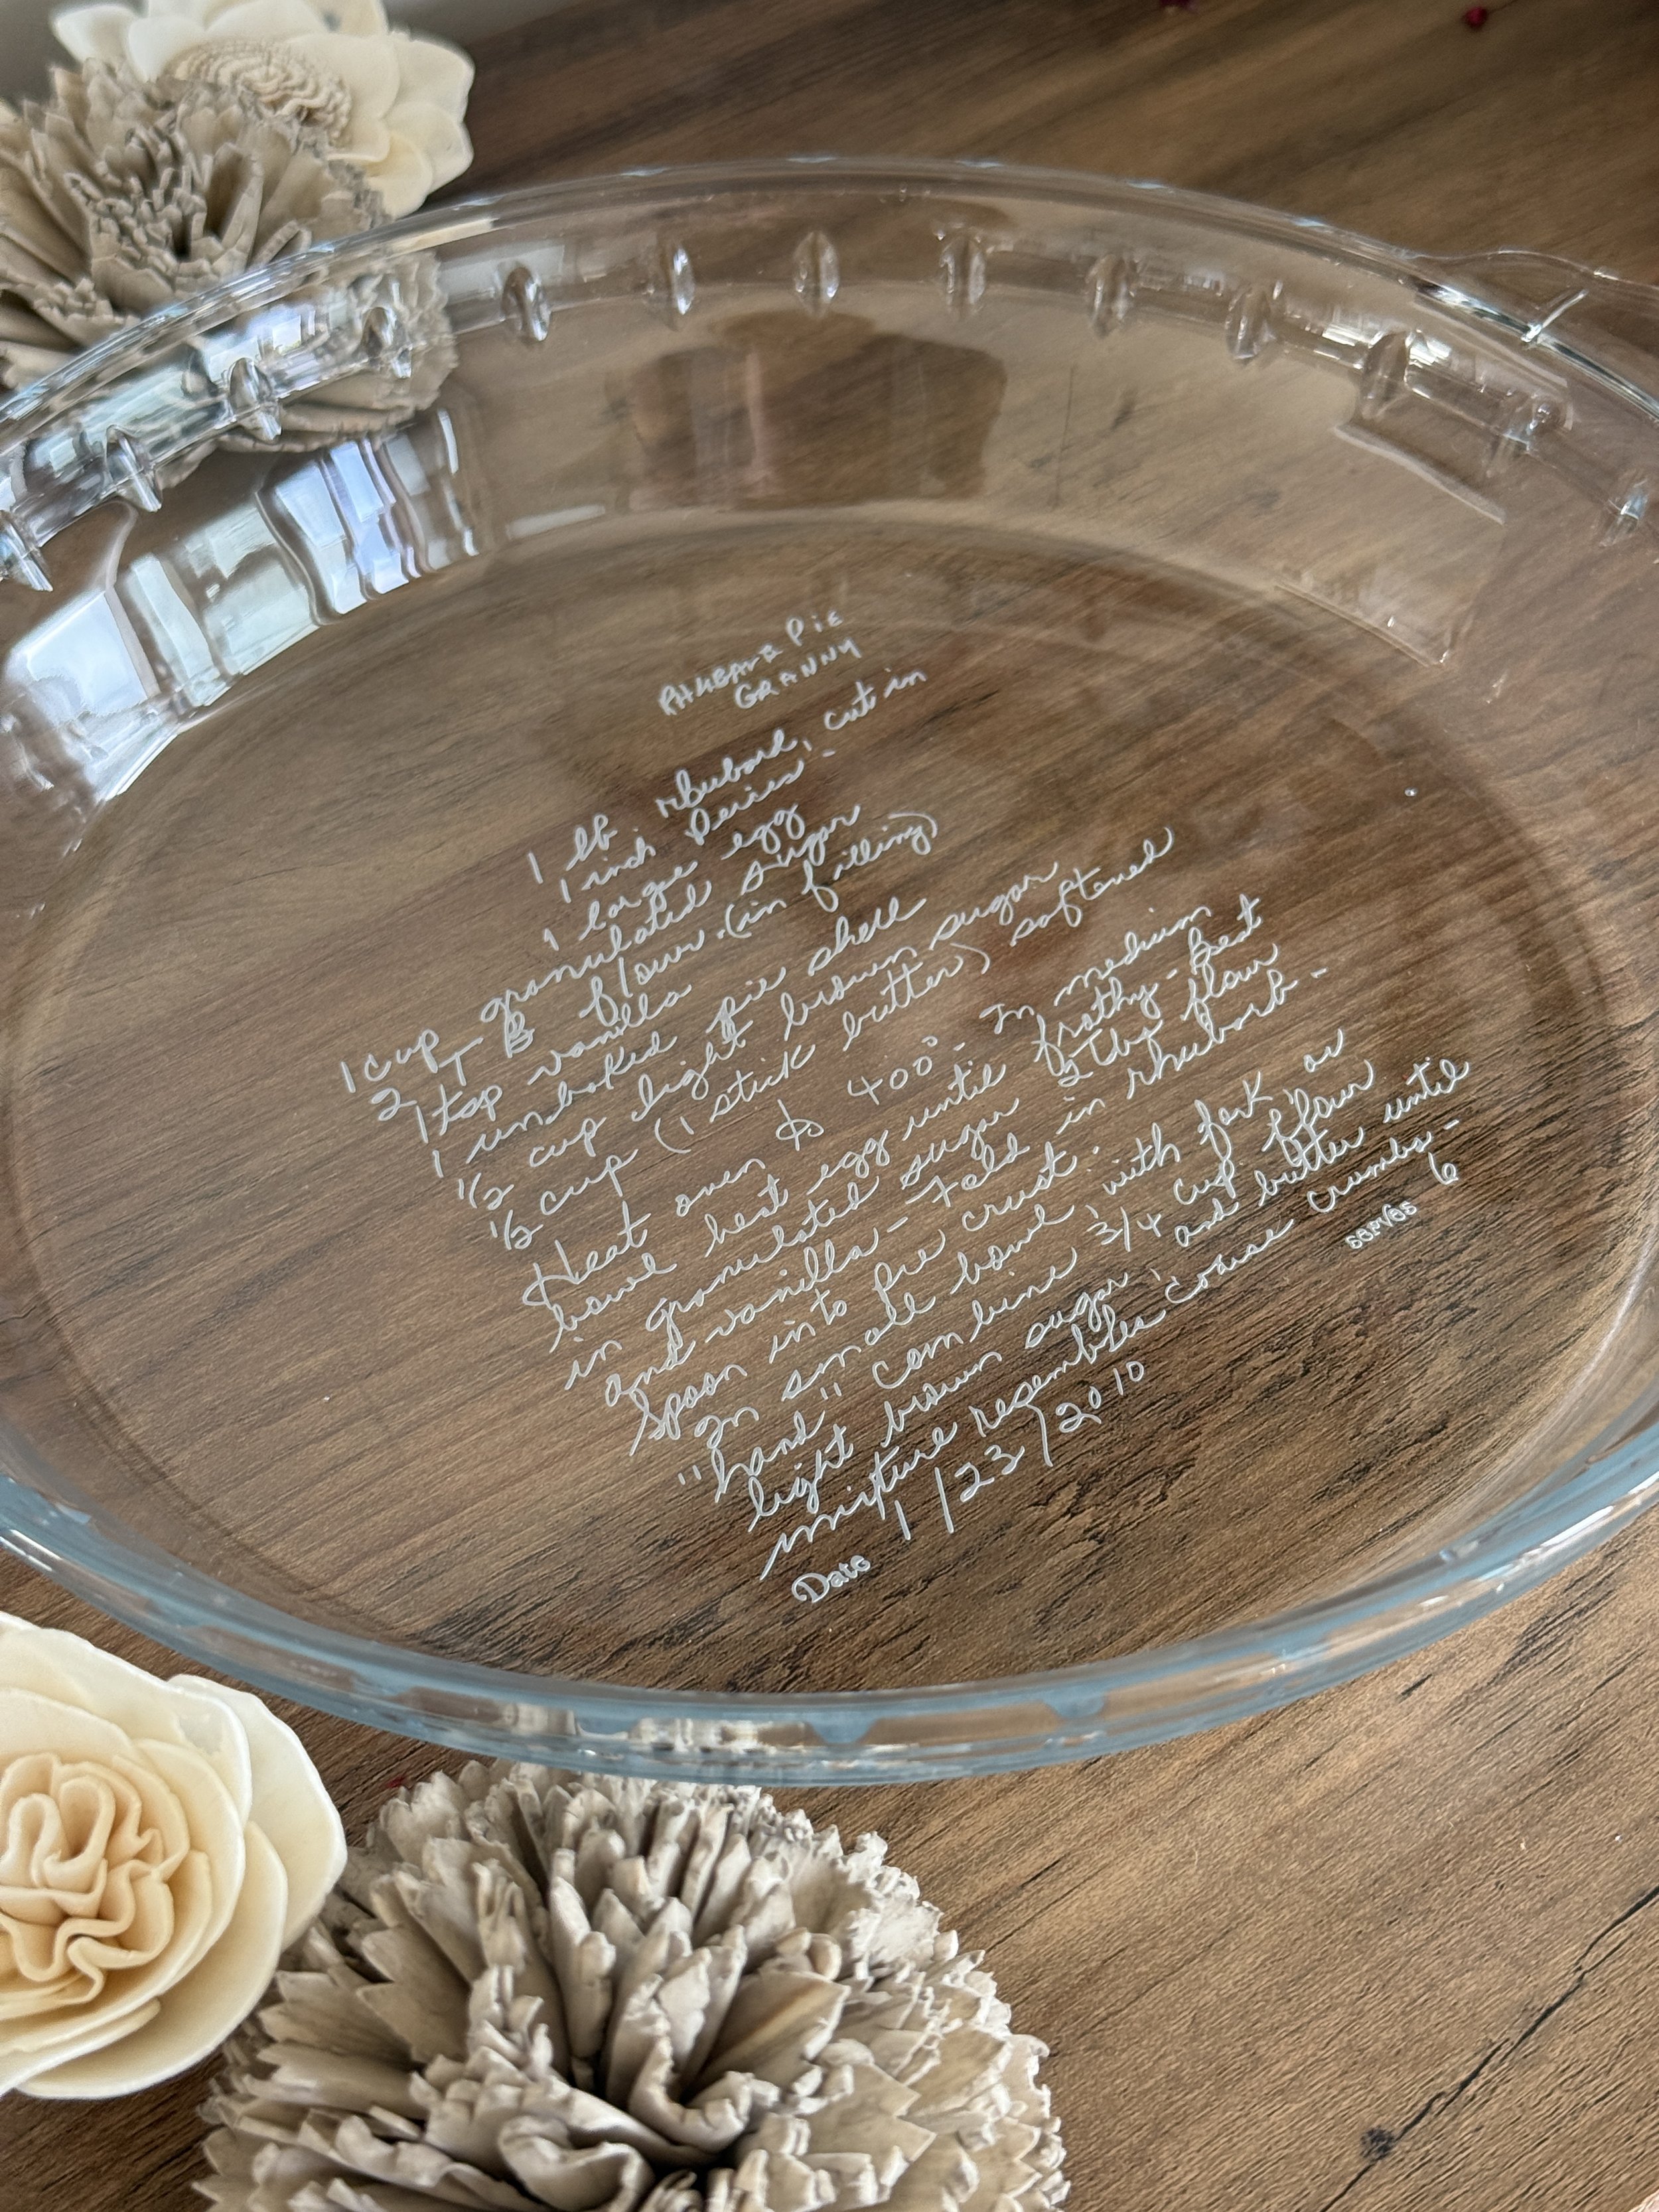 RHUBARB PiE
GRANNY
1 lb rhubard, cut in
1 inch peices -
1 large egg
1 cup granulated sugar
2 TB flour (in filling)
1 tsp vanilla
1 unbaked pie shell
1/2 cup light brown sugar
1/2 cup (1 stick butter) softened
Heat oven to 400° - In medium
bowl heat egg until frothy - Beat
in granulated sugar 2 Tbs flour
and vanilla - Fold in rhubarb -
Spoon into pie crust.
In small bowl, with fork or
"hand" combine 3/4 cup flour
light brown sugar, and butter until
mixture resembles coarse crumbs -
Date 1/23/2010 serves 6